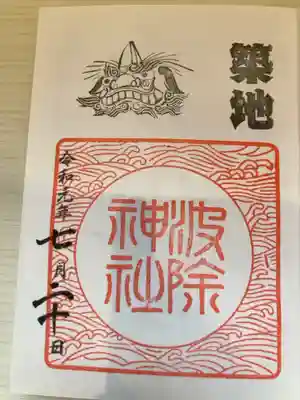 築地
波除
神社
令和元年七月二十日